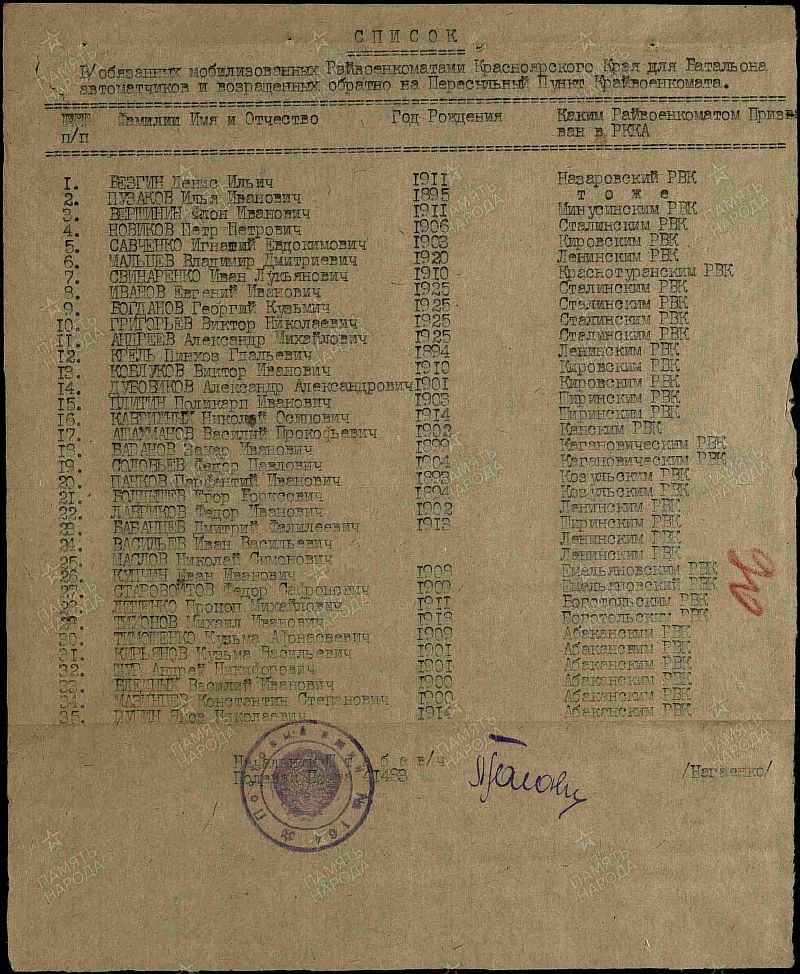 СПИСОК
В/обязанных мобилизованных Райвоенкоматами Красноярского Края для Батальона
автоматчиков и возращенных обратно на Пересыльный Пункт Крайвоенкомата.
п/п Фамилии Имя и Отчество Год Рождения Каким Райвоенкоматом Призван
ван в РККА
1. ВЕЗГИН Денис Ильич 1911 Назаровский РВК
2. ПУЗАКОВ Илья Иванович 1895 то же
3. ВЕРШИНИН Флон Иванович 1911 Минусинским РВК
4. НОВИКОВ Петр Петрович 1906 Сталинским РВК
5. САВЧЕНКО Игнатий Евдокимович 1903 Кировским РВК
6. МАЛЬЦЕВ Владимир Дмитриевич 1920 Ленинским РВК
7. СВИНАРЕНКО Иван Лукьянович 1910 Краснотуранским РВК
8. ИВАНОВ Евгений Иванович 1925 Сталинским РВК
9. БОГДАНОВ Георгий Кузьмич 1925 Сталинским РВК
10. ГРИГОРЬЕВ Виктор Николаевич 1925 Сталинским РВК
11. АНДРЕЕВ Александр Михайлович 1925 Сталинским РВК
12. КРЕЛЬ Пинхоз Гдальевич 1894 Ленинским РВК
13. КОВЛУКОВ Виктор Иванович 1910 Кировским РВК
14. ДУБОВИКОВ Александр Александрович 1901 Кировским РВК
15. Поликарп Иванович 1903 Ширинским РВК
16. Николай Осипович 1914 Ширинским РВК
17. Василий Прокофьевич 1902 Канским РВК
18. Захар Иванович 1899 Кагановическим РВК
19. СОЛОВЬЕВ Федор Павлович 1904 Кагановическим РВК
20. ПАНКОВ Парфентий Иванович 1893 Козульским РВК
21. Егор Борисович 1894 Козульским РВК
22. ЛАВРИКОВ Федор Иванович 1902 Ленинским РВК
23. Дмитрий Фалилеевич 1913 Ширинским РВК
24. ВАСИЛЬЕВ Иван Васильевич Ленинским РВК
25. МАСЛОВ Николай Симонович Ленинским РВК
26. Иван Иванович 1908 Емельяновским РВК
27. СТАРОВОЙТОВ Федор Сафронович Емельяновский РВК
28. Михайлович 1911 Боготольским РВК
29. Михаил Иванович 1918 Боготольским РВК
30. ТИМОШЕНКО Кузьма Афанасьевич 1909 Абаканским РВК
31. КИРЬЯНОВ Кузьма Васильевич 1901 Абаканским РВК
32. Андрей Никифорович 1901 Абаканским РВК
33. Василий Иванович 1900 Абаканским РВК
34. Константин Степанович 1900 Абаканским РВК
35. Яков Николаевич 1914 Абаканским РВК
в/ч
/Нагаенко/
ПАМЯТЬ НАРОДА